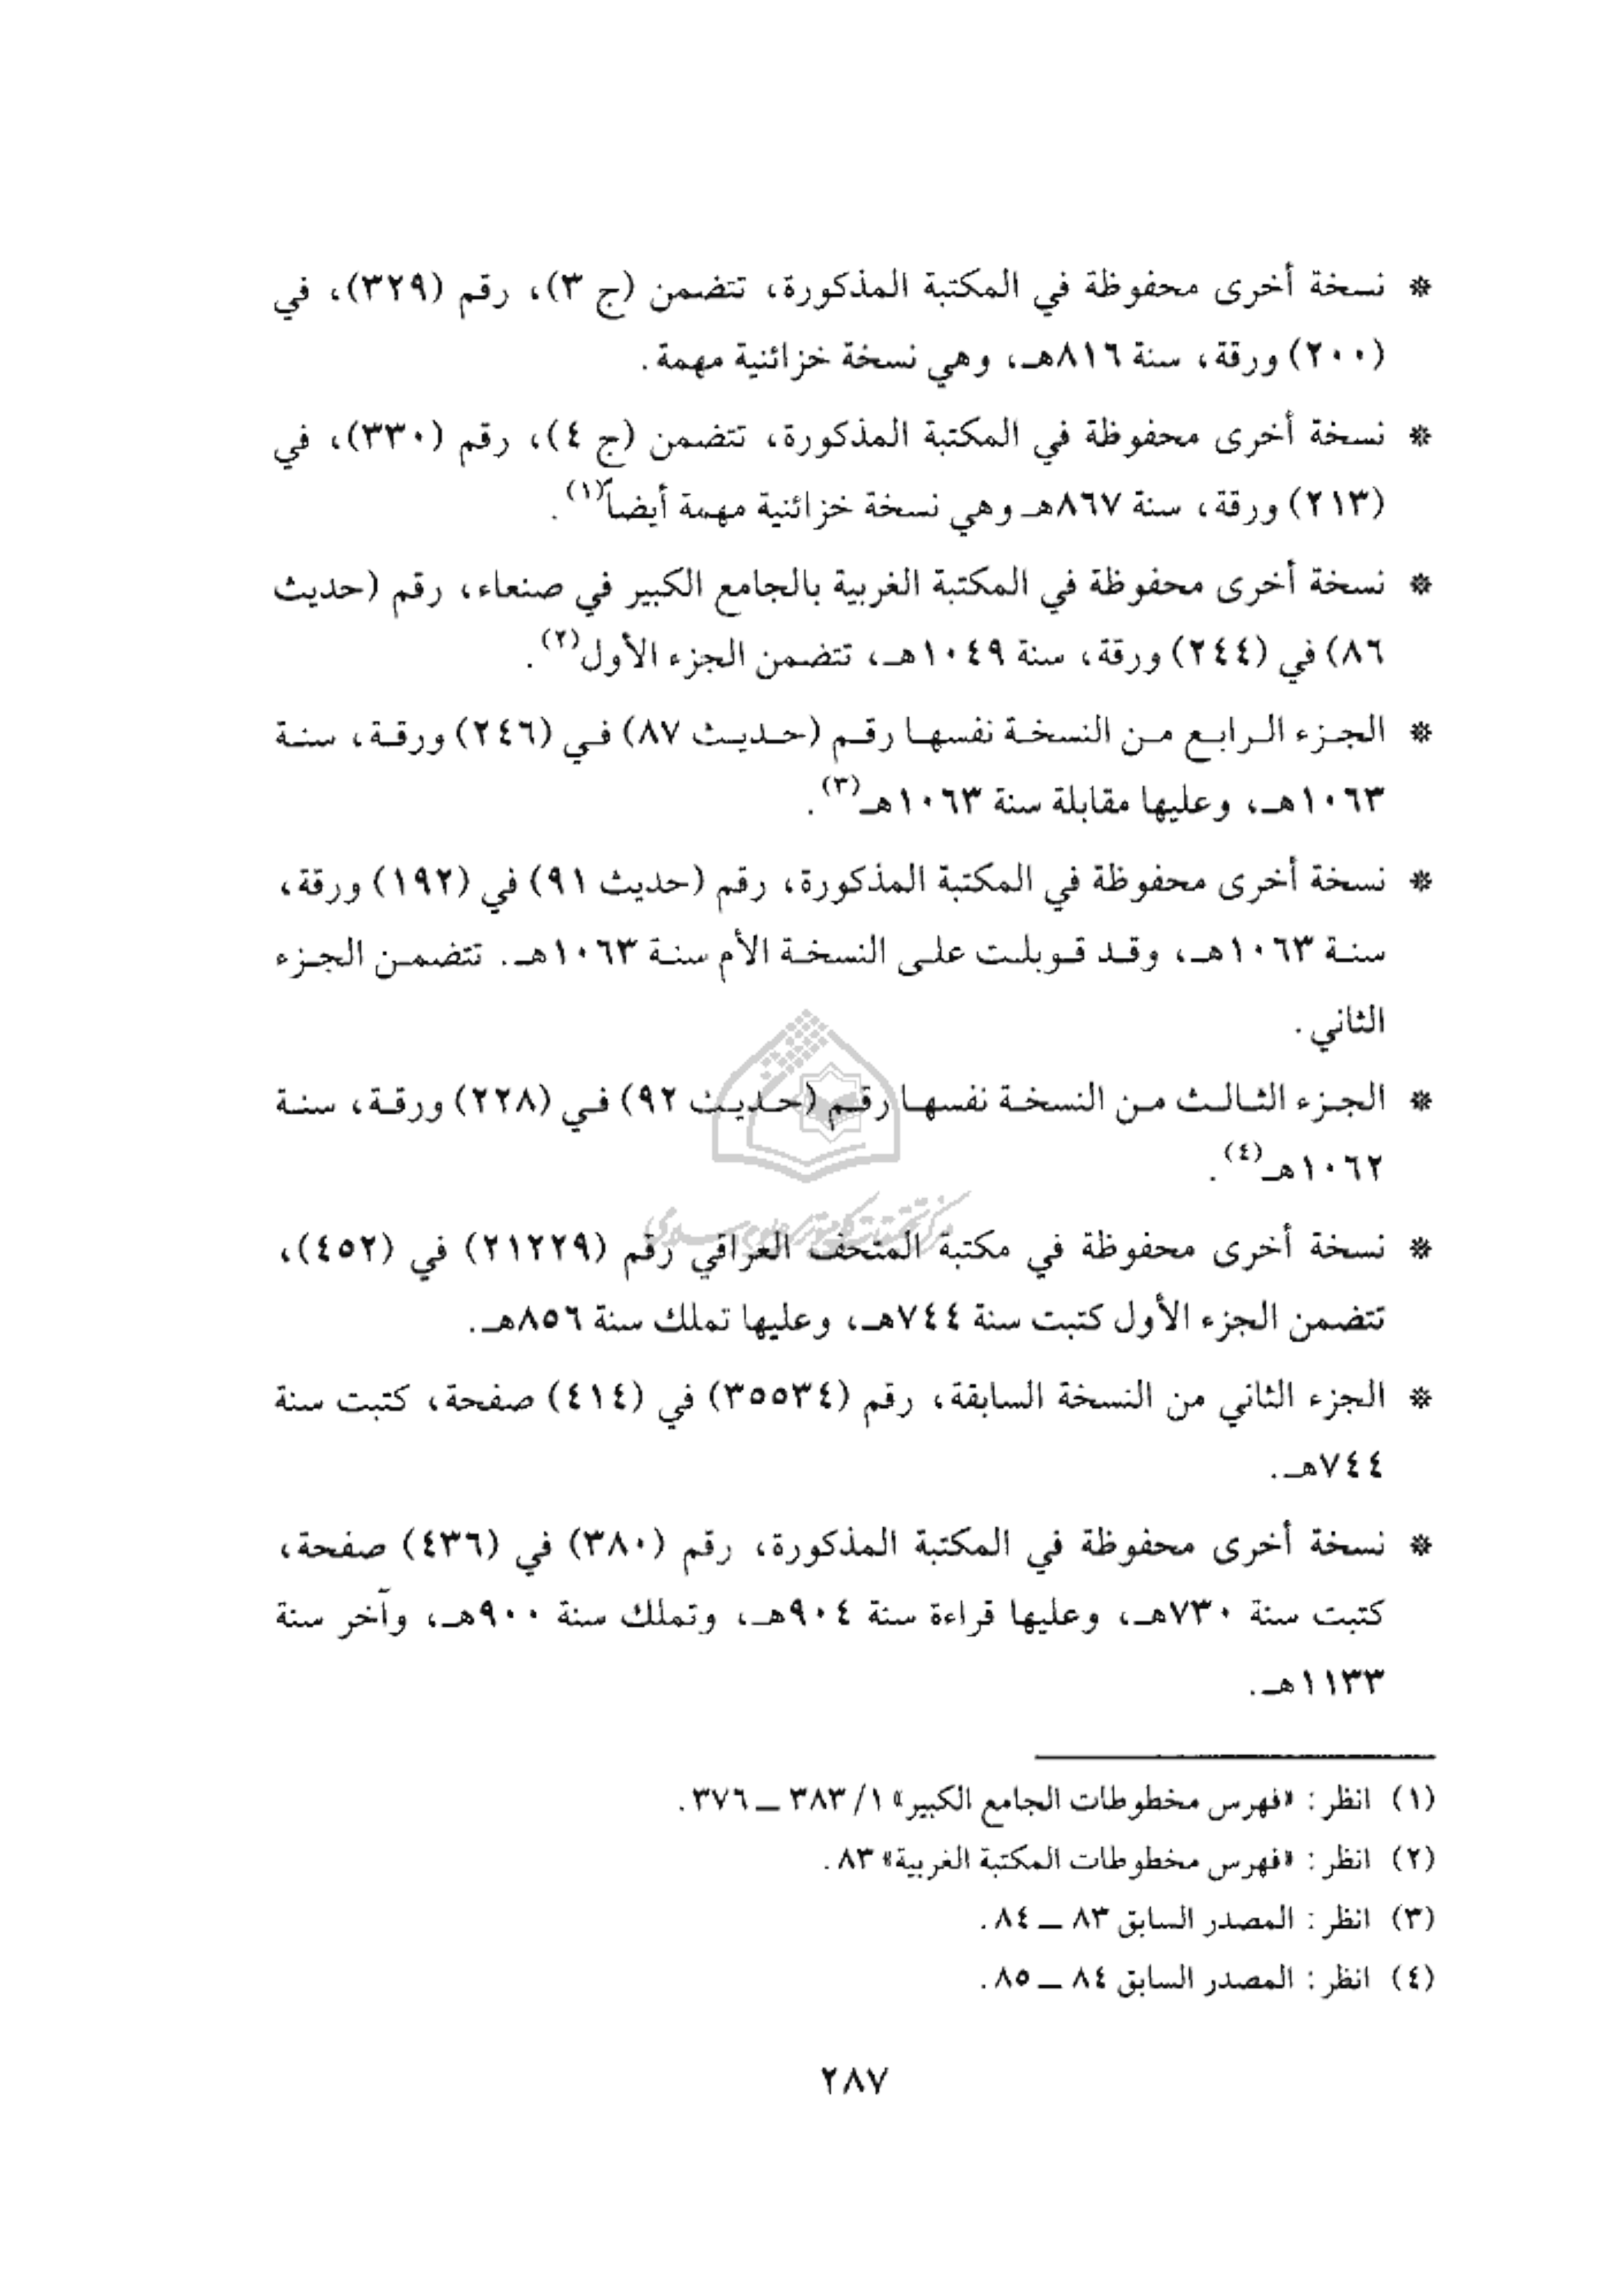 * نسخة أخرى محفوظة في المكتبة المذكورة، تتضمن (ج ٣)، رقم (٣٢٩)، في
(٢٠٠) ورقة، سنة ٨١٦هـ، وهي نسخة خزائنية مهمة.
* نسخة أخرى محفوظة في المكتبة المذكورة، تتضمن (ج ٤)، رقم (٣٣٠)، في
(٢١٣) ورقة، سنة ٨٦٧هـ وهي نسخة خزائنية مهمة أيضاً(١).
* نسخة أخرى محفوظة في المكتبة الغربية بالجامع الكبير في صنعاء، رقم (حديث
٨٦) في (٢٤٤) ورقة، سنة ١٠٤٩هـ، تتضمن الجزء الأول(٢).
* الجزء الرابع من النسخة نفسها رقم (حديث ٨٧) في (٢٤٦) ورقة، سنة
١٠٦٣هـ، وعليها مقابلة سنة ١٠٦٣هـ(٣).
* نسخة أخرى محفوظة في المكتبة المذكورة، رقم (حديث ٩١) في (١٩٢) ورقة،
سنة ١٠٦٣هـ، وقد قوبلت على النسخة الأم سنة ١٠٦٣هـ. تتضمن الجزء
الثاني.
* الجزء الثالث من النسخة نفسها رقم (حديث ٩٢) في (٢٢٨) ورقة، سنة
١٠٦٢هـ(٤).
* نسخة أخرى محفوظة في مكتبة المتحف العراقي رقم (٢١٢٢٩) في (٤٥٢)،
تتضمن الجزء الأول كتبت سنة ٧٤٤هـ، وعليها تملك سنة ٨٥٦هـ.
* الجزء الثاني من النسخة السابقة، رقم (٣٥٥٣٤) في (٤١٤) صفحة، كتبت سنة
٧٤٤هـ.
* نسخة أخرى محفوظة في المكتبة المذكورة، رقم (٣٨٠) في (٤٣٦) صفحة،
كتبت سنة ٧٣٠هـ، وعليها قراءة سنة ٩٠٤هـ، وتملك سنة ٩٠٠هـ، وآخر سنة
١١٣٣هـ.
(١) انظر: «فهرس مخطوطات الجامع الكبير» ١/ ٣٨٣ ـ ٣٧٦.
(٢) انظر: «فهرس مخطوطات المكتبة الغربية» ٨٣.
(٣) انظر: المصدر السابق ٨٣ ـ ٨٤.
(٤) انظر: المصدر السابق ٨٤ ـ ٨٥.
٢٨٧